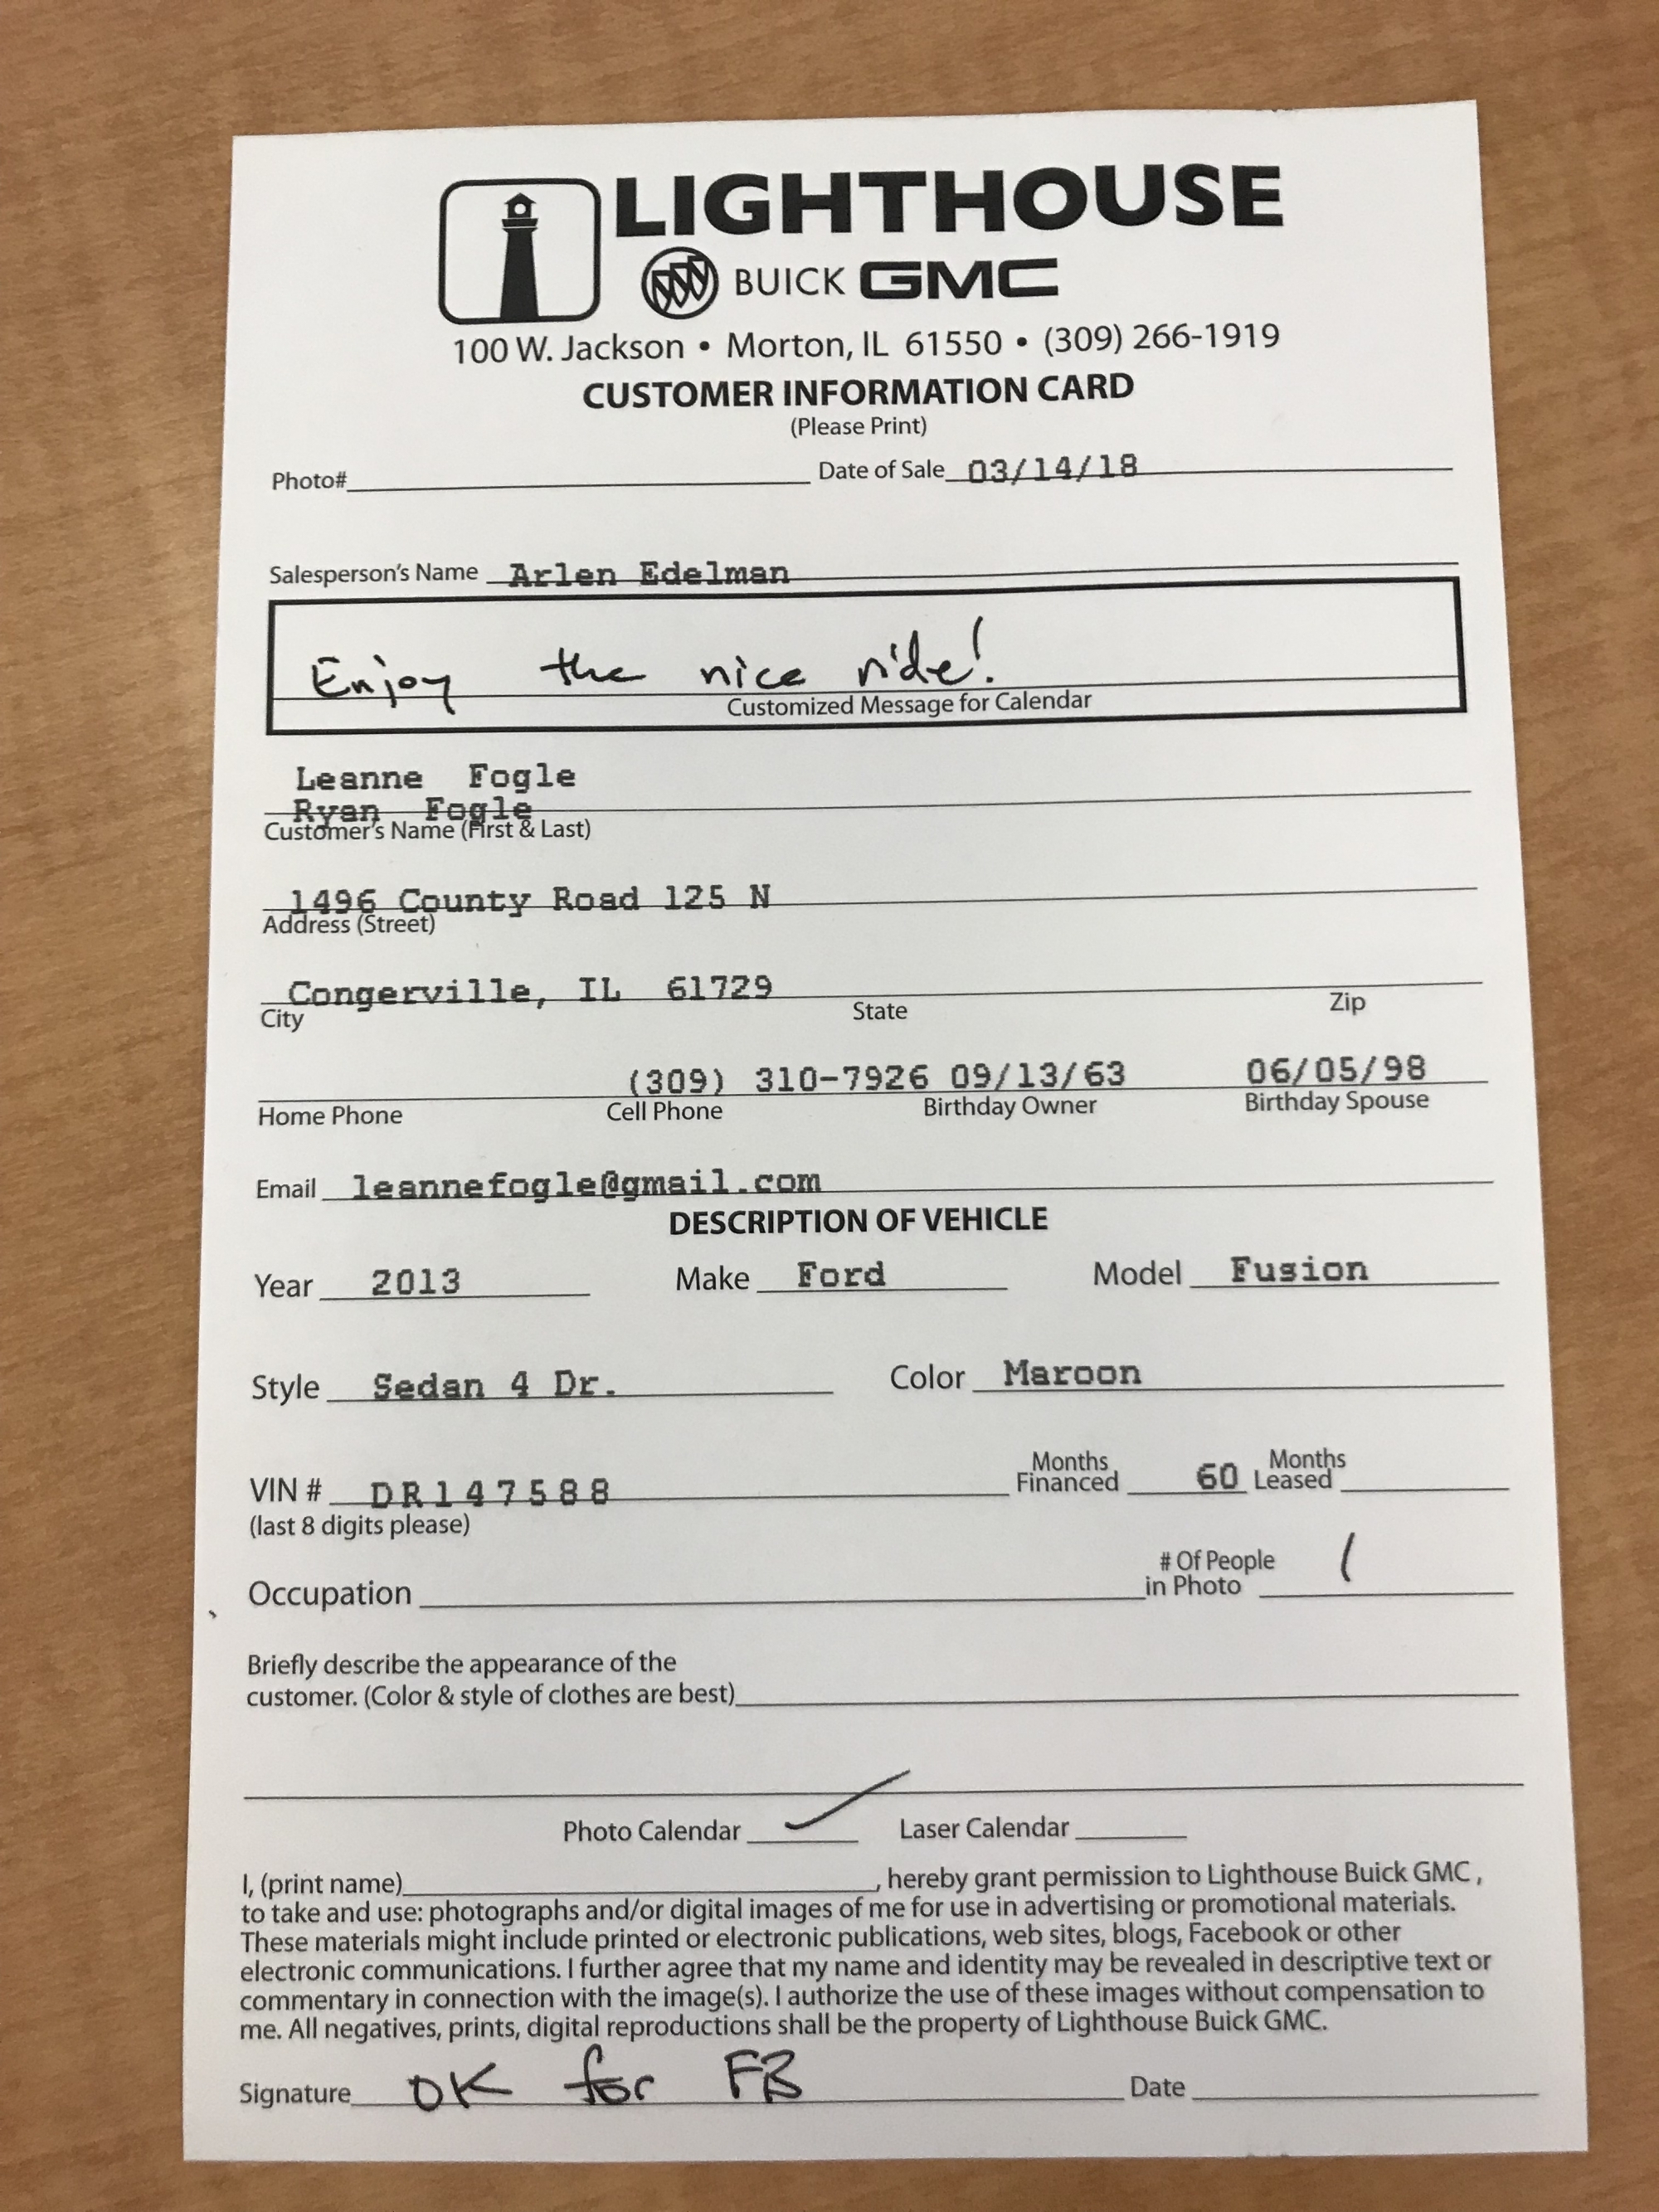 LIGHTHOUSE
BUICK GMC
100 W. Jackson • Morton, IL 61550 • (309) 266-1919
CUSTOMER INFORMATION CARD
(Please Print)
Photo# Date of Sale 03/14/18
Salesperson's Name Arlen Edelman
Enjoy the nice ride!
Customized Message for Calendar
Leanne Fogle
Ryan Fogle
Customer's Name (First & Last)
1496 County Road 125 N
Address (Street)
Congerville, IL 61729
City State Zip
(309) 310-7926 09/13/63 06/05/98
Home Phone Cell Phone Birthday Owner Birthday Spouse
Email leannefogle@gmail.com
DESCRIPTION OF VEHICLE
Year 2013 Make Ford Model Fusion
Style Sedan 4 Dr. Color Maroon
Months Months
VIN # DR147588 Financed 60 Leased
(last 8 digits please)
# Of People 1
Occupation in Photo
Briefly describe the appearance of the
customer. (Color & style of clothes are best)
Photo Calendar ✓ Laser Calendar
I, (print name) , hereby grant permission to Lighthouse Buick GMC ,
to take and use: photographs and/or digital images of me for use in advertising or promotional materials.
These materials might include printed or electronic publications, web sites, blogs, Facebook or other
electronic communications. I further agree that my name and identity may be revealed in descriptive text or
commentary in connection with the image(s). I authorize the use of these images without compensation to
me. All negatives, prints, digital reproductions shall be the property of Lighthouse Buick GMC.
Signature OK for FB Date